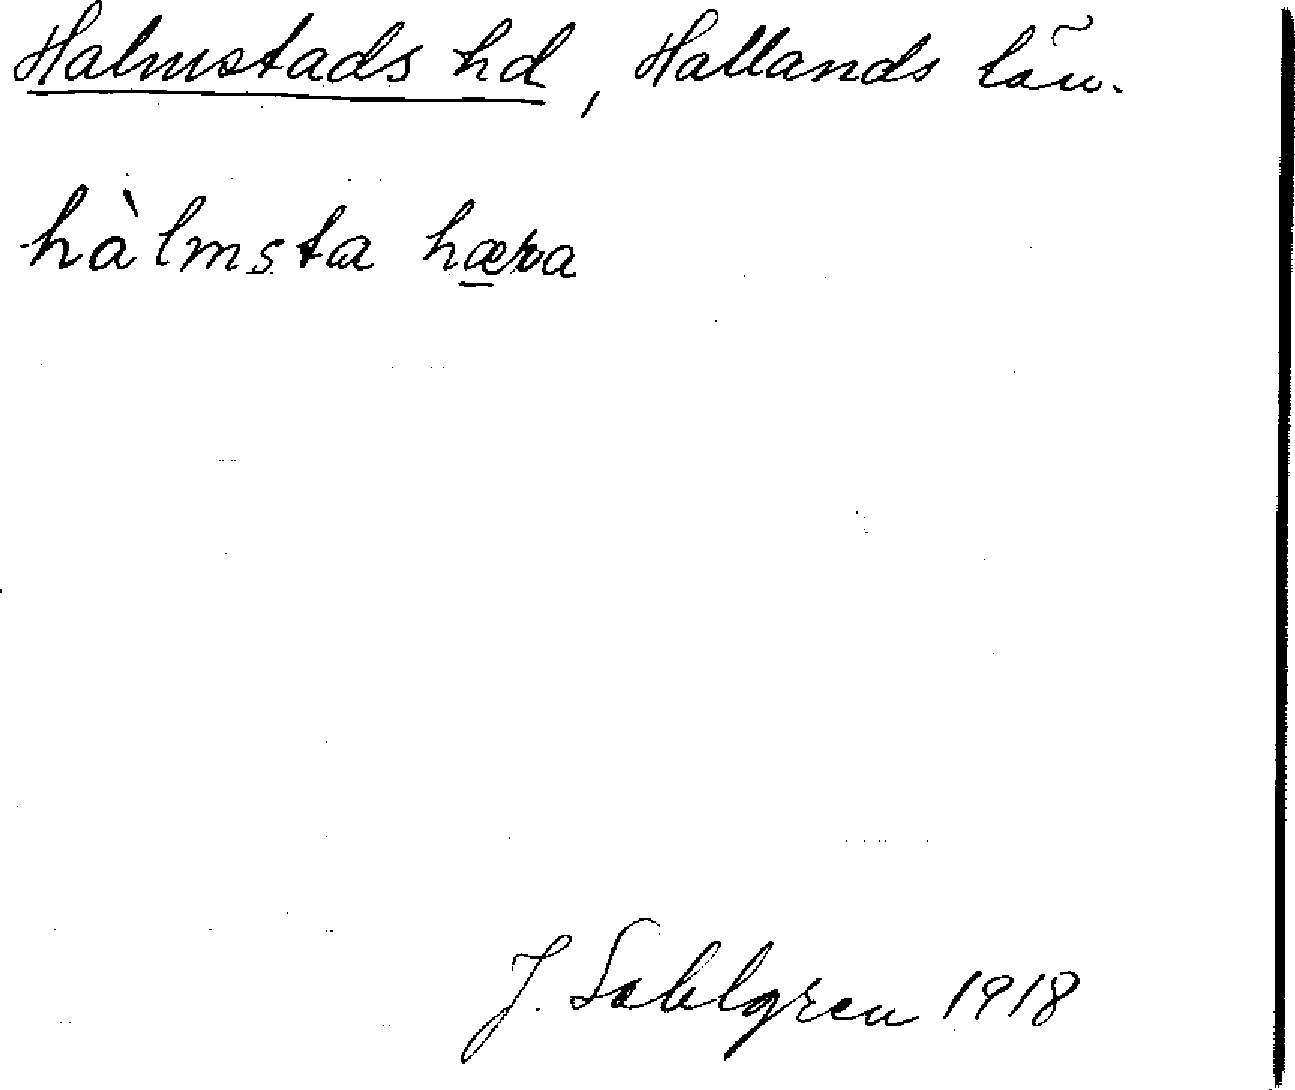 Halmstads hd, Hallands län.
hàlmsta hæra
J. Sahlgren 1918